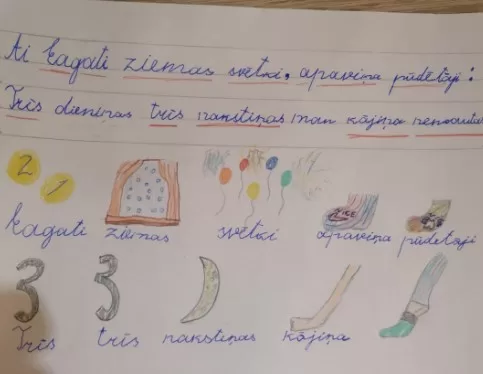 Ai bagāti ziemas svētki, apaviņa pūdētāji:
Trīs dieniņas trīs nakstiņas man kājiņa nenoauta
2 1
bagāti ziemas svētki apaviņa pūdētāji
3 3
Trīs trīs nakstiņas kājiņa